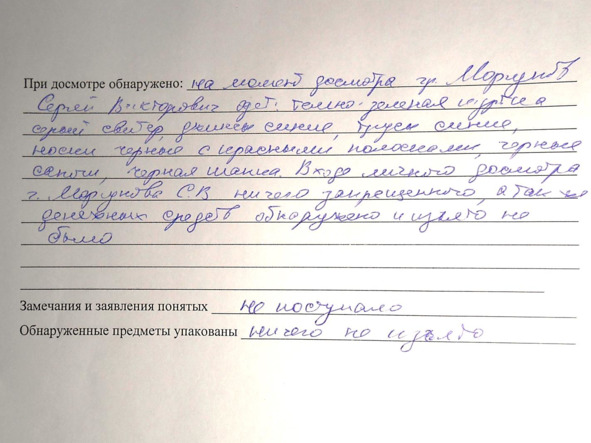 При досмотре обнаружено: на момент досмотра гр. Моргунов
Сергей Викторович одет: темно-зеленая куртка
серый свитер, джинсы синие, трусы синие,
носки черные с красными полосками, черные
сапоги, черная шапка. В ходе личного досмотра
г. Моргунова С.В ничего запрещенного, а так же
денежных средств обнаружено и изъято не
было
Замечания и заявления понятых не поступало
Обнаруженные предметы упакованы ничего не изъято